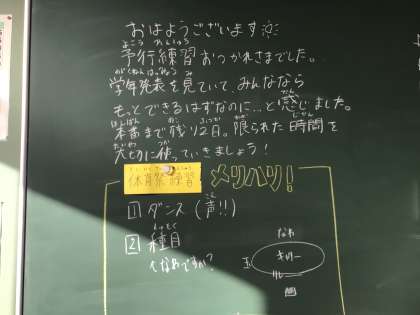 おはようございます
予行練習おつかれさまでした。
学年発表を見ていて、みんななら
もっとできるはずなのに…と感じました。
本番まで残り2日。限られた時間を
大切に使っていきましょう！
体育祭練習 メリハリ！
1 ダンス（声!!）
2 種目
なわ